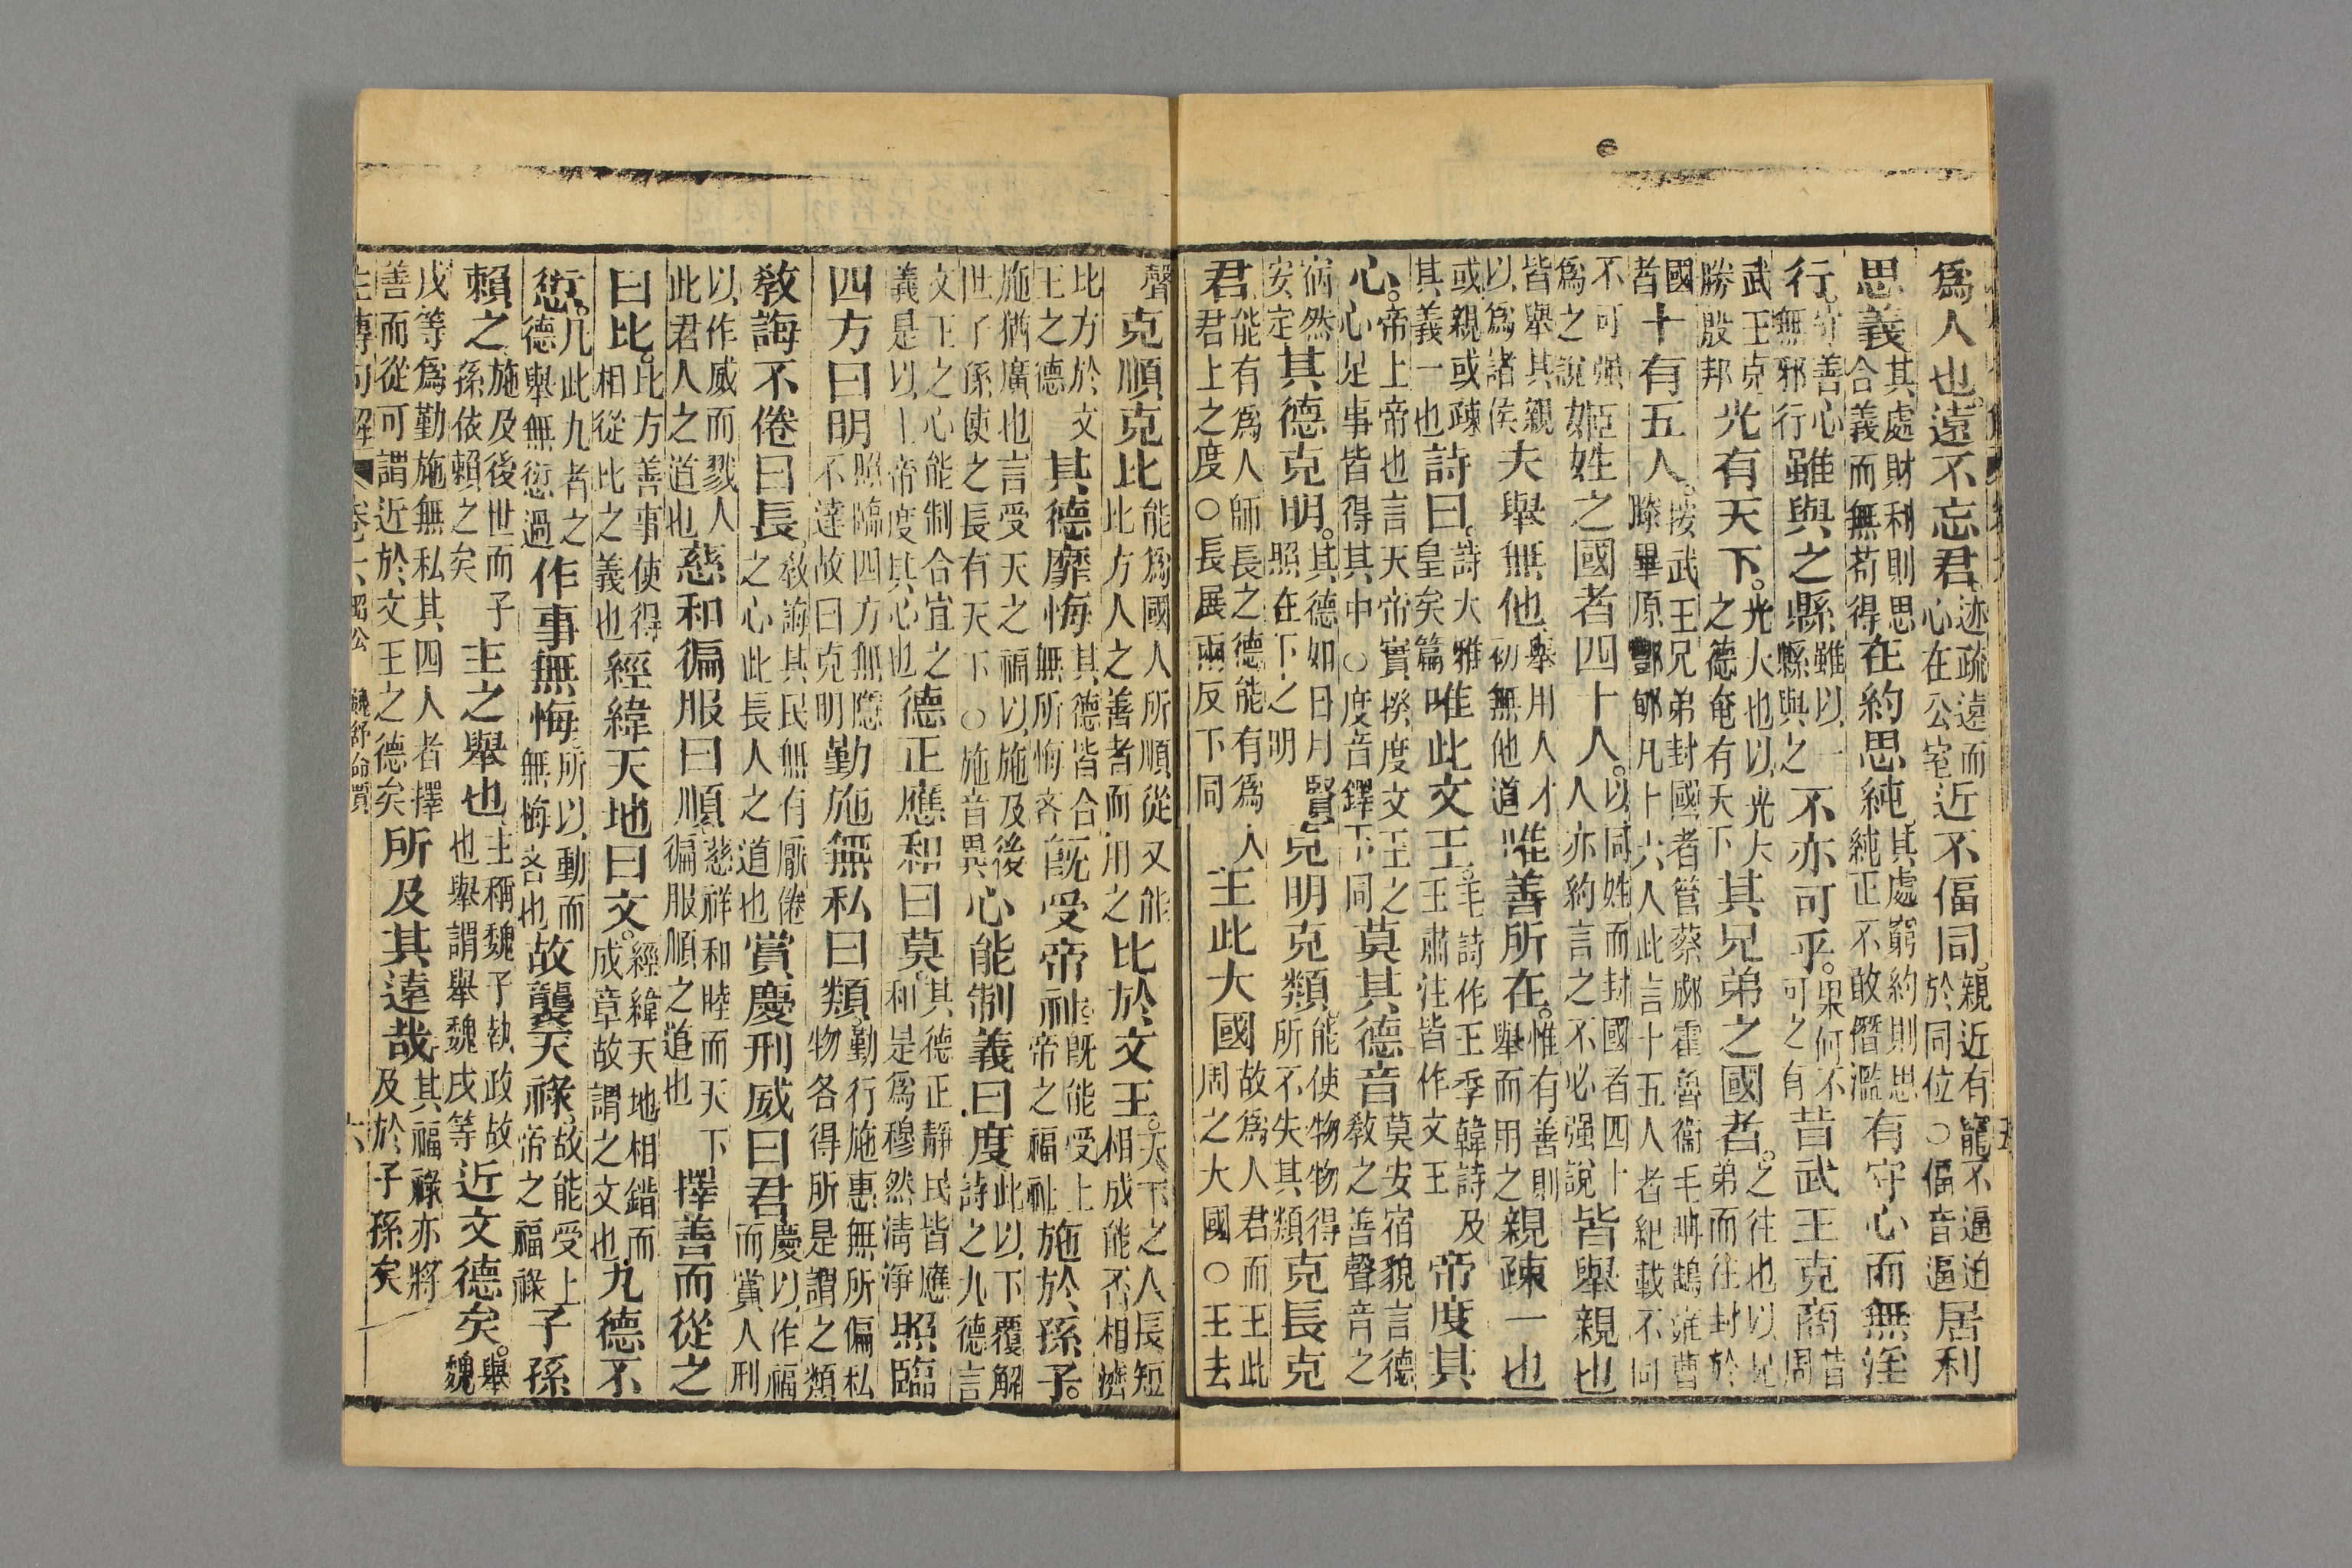 爲人也遠不忘君迹疏遠而心在公室近不偪同親近有寵不逼迫於同位○偪音逼居利
思義其處財利則思合義而無苟得在約思純其處窮約則思純正不敢僭濫有守心而無淫
行有守善心無邪行雖與之縣雖以一縣與之不亦可乎果何不可之有昔武王克商昔周
武王克勝殷邦光有天下光大也以光大之德奄有天下其兄弟之國者之往也以兄弟而往封於
國者十有五人按武王兄弟封國者管蔡郕霍魯衞毛聃郜雍曹滕畢原酆郇凡十六人此言十五人者紀載不同
不可強爲之說姬姓之國者四十人以同姓而封國者四十人亦約言之不必强說皆舉親也
皆舉其親以爲諸侯夫舉無他舉用人才初無他道唯善所在惟有善則舉而用之親疎一也
或親或疎其義一也詩曰詩大雅皇矣篇唯此文王毛詩作王季韓詩及王肅注皆作文王帝度其
心帝上帝也言天帝實揆度文王之心心足事皆得其中○度音鐸下同莫其德音莫安宿貌言德教之善聲音之
病然安定其德克明其德如日月照在下之明賢克明克類能使物物得所不失其類克長克
君能有爲人師長之德能有爲人君君上之度○長展兩反下同王此大國故爲人君而王此周之大國○王去
聲克順克比能爲國人所順從又能比方人之善者而用之比於文王天下之人長短相成能否相濟
比方於文王之德其德靡悔其德皆合無所悔吝旣受帝祉旣能受上帝之福祉施於孫子
施猶廣也言受天之福以施及後世子孫使之長有天下○施音異心能制義曰度此以下覆解詩之九德言
文王之心能制合宜之義是以上帝度其心也德正應和曰莫其德正靜民皆應和是爲穆然淸淨照臨
四方曰明照臨四方無隱不達故曰克明勤施無私曰類勤行施惠無所偏私物各得所是謂之類
敎誨不倦曰長敎誨其民無有厭倦之心此長人之道也賞慶刑威曰君慶以作福而賞人刑
以作威而戮人此君人之道也慈和徧服曰順慈祥和睦而天下徧服順之道也擇善而從之
曰比比方善事使得相從此之義也經緯天地曰文經緯天地相錯而成章故謂之文也九德不
愆凡此九者之德舉無愆過作事無悔所以動而無悔吝也故襲天祿故能受上帝之福祿子孫
賴之施及後世而子孫依賴之矣主之舉也主稱魏子執政故也舉謂舉魏戌等近文德矣舉魏
戌等爲勤施無私其四人者擇善而從可謂近於文王之德矣所及其遠哉其福祿亦將及於子孫矣
左傳句解 卷六 昭公 魏舒命賈 六